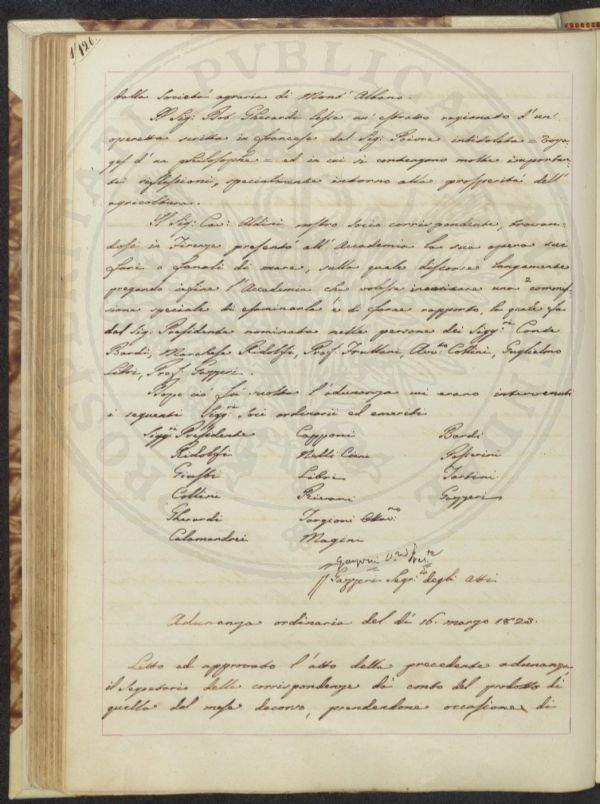 126.
dalla Società agraria di Mont'Albano.
Il Sig: Dot Gherardi lesse un'estratto ragionato d'un'
operetta scritta in francese dal Sig: Poivre intitolata = Voya-
ges d'un philosophe = ed in cui si contengono molte importan-
ti riflessioni, specialmente intorno alla prosperità dell'
agricoltura.
Il Sig: Cav: Aldini nostro Socio corrispondente, trovan-
dosi in Firenze presentò all'Accademia la sua opera sui
fari o fanali di mare, sulla quale discorse lungamente
pregando infine l'Accademia che volesse incaricare una commis-
sione speciale di esaminarla e di farne rapporto, la quale fu
dal Sig: Presidente nominata nelle persone dei Sigg.ri Conte
Bardi, Marchese Ridolfi, Prof. Fruttani, Avv.to Collini, Guglielmo
Libri, Prof. Gazzeri.
Dopo ciò fu sciolta l'adunanza cui erano intervenuti
i seguenti Sigg.ri Soci ordinarii ed emeriti
Sigg.ri Presidente Capponi Bardi
Ridolfi Nelli Passerini
Giusti Libri Tartini
Collini Gazzeri
Gherardi Targioni Ottav:no
Calamandrei Magini
Gazzeri Segr:io degli Atti
Adunanza ordinaria del dì 16. marzo 1823.
Letto ed approvato l'atto della precedente adunanza,
il Segretario delle corrispondenze dà conto del prodotto di
quella dal mese decorso, prendendone occasione di